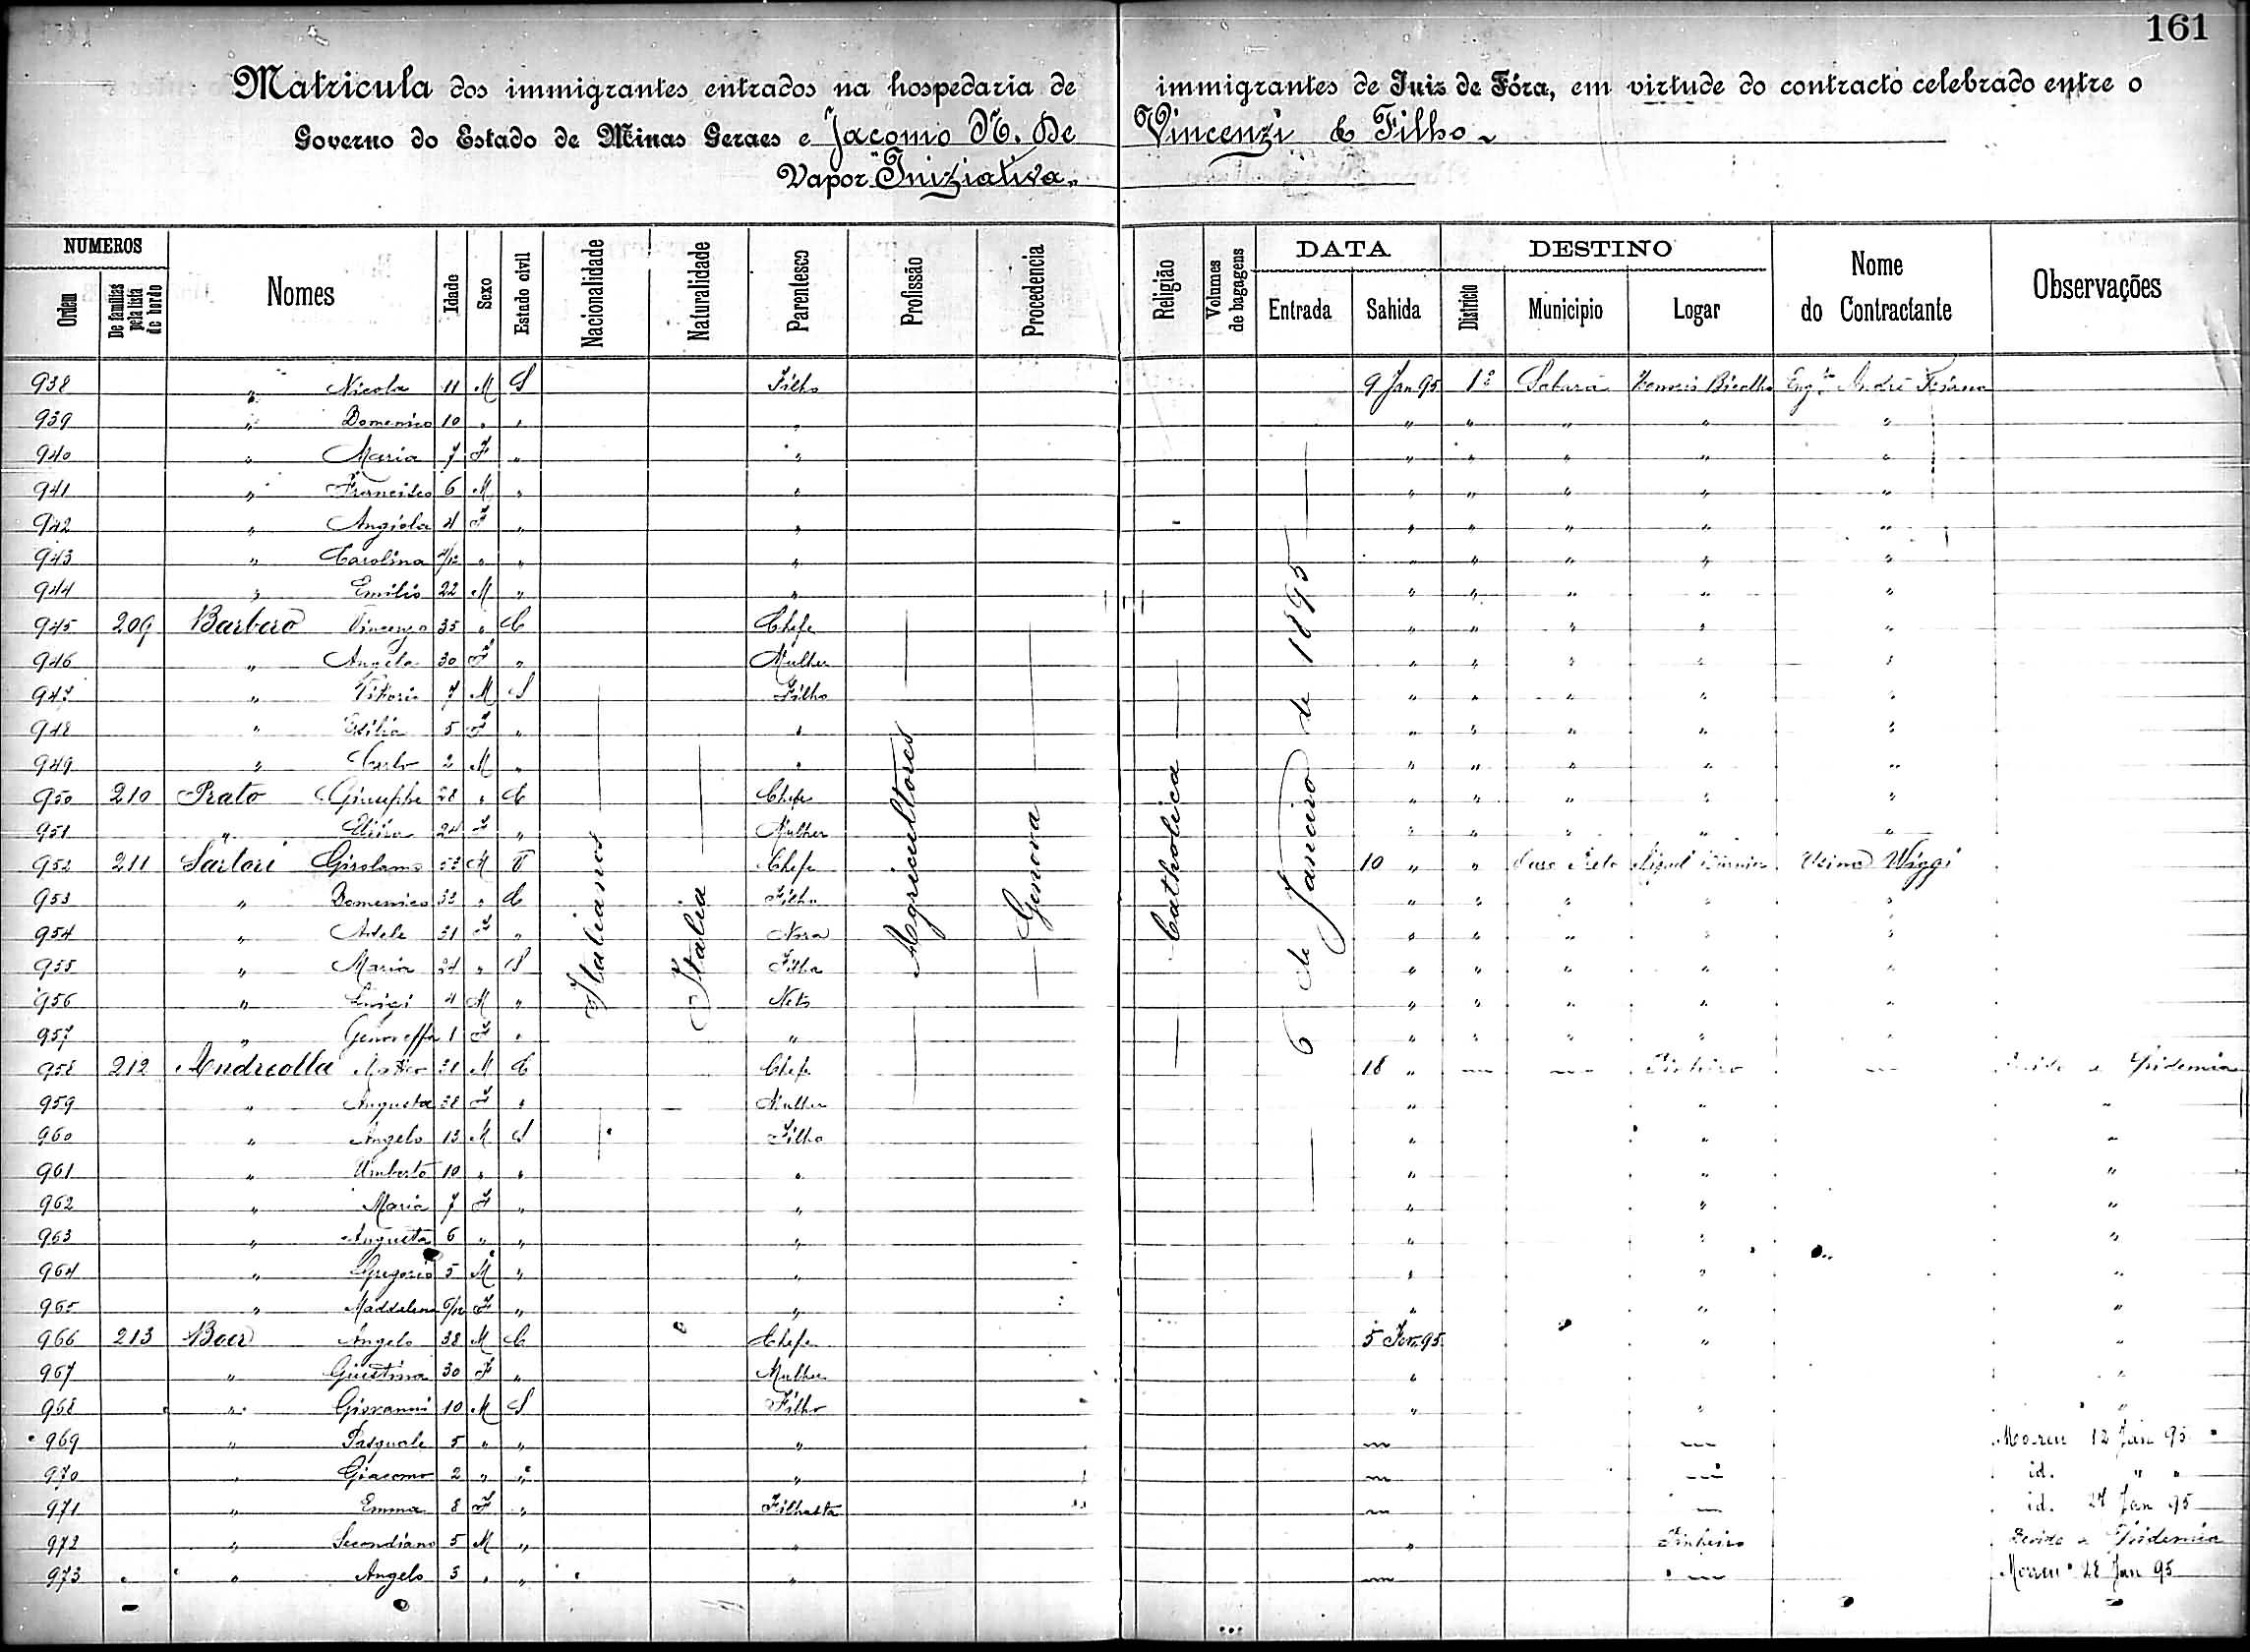 161
Matricula dos immigrantes entrados na hospedaria de immigrantes de Juiz de Fóra, em virtude do contracto celebrado entre o
Governo do Estado de Minas Geraes e Jacomo N. De Vincenzi & Filho
Vapor "Iniziativa"
NUMEROS DATA DESTINO
Ordem De familias pela lista de bordo Nomes Idade Sexo Estado civil Nacionalidade Naturalidade Parentesco Profissão Procedencia Religião Volumes de bagagens Entrada Sahida Districto Municipio Logar Nome do Contractante Observações
Italianos Italia Agricultores Genova Catholica 6 de Janeiro de 1895
938 " Nicola 11 M S Filho 9 Jan 95 1º Sabará André
939 " Domenico 10 " " " " " " " "
940 " Maria 7 F " " " " " " "
941 " Francisco 6 M " " " " " " "
942 " Angiola 4 F " " " " " " "
943 " Carolina " " " " " " " "
944 " Emilio 22 M " " " " " " "
945 209 Barbero Vincenzo 35 " C Chefe " " " " "
946 " Angela 30 F " Mulher " " " " "
947 " 7 M S Filho " " " " "
948 " 5 F " " " " " " "
949 " Carlo 2 M " " " " " " "
950 210 Prato Giuseppe 28 " C Chefe " " " " "
951 " 24 F " Mulher " " " " "
952 211 Sartori Girolamo 53 M V Chefe 10 " " Ouro Preto Miguel Burnier Usina Wiggi
953 " Domenico 33 " C Filho " " " " "
954 " Adele 31 F " Nora " " " " "
955 " Maria 24 " S Filha " " " " "
956 " Luigi 4 M " Neto " " " " "
957 " Genoveffa 1 F " " " " " " "
958 212 Andreolla Matteo M C Chefe 18 " — — Pinheiro — Devido a Epidemia
959 " Augusta 38 F " Mulher " " "
960 " Angelo 13 M S Filho " " "
961 " Umberto 10 " " " " " "
962 " Maria 7 F " " " " "
963 " Augusta 6 " " " " " "
964 " Gregorio 5 M " " " " "
965 " Maddalena 6/12 F " " " " "
966 213 Boer Angelo 38 M C Chefe 5 Fev. 95 " "
967 " Giustina 30 F " Mulher " " "
968 " Giovanni 10 M S Filho " " "
969 " Pasquale 5 " " " — — Morreu 12 Jan 95
970 " Giacomo 2 " " " — — id. " "
971 " Emma 8 F " Filhasta — — id. 27 Jan 95
972 " Secondiano 5 M " " " Pinheiro Devido a Epidemia
973 " Angelo 3 " " " — — Morreu 28 Jan 95